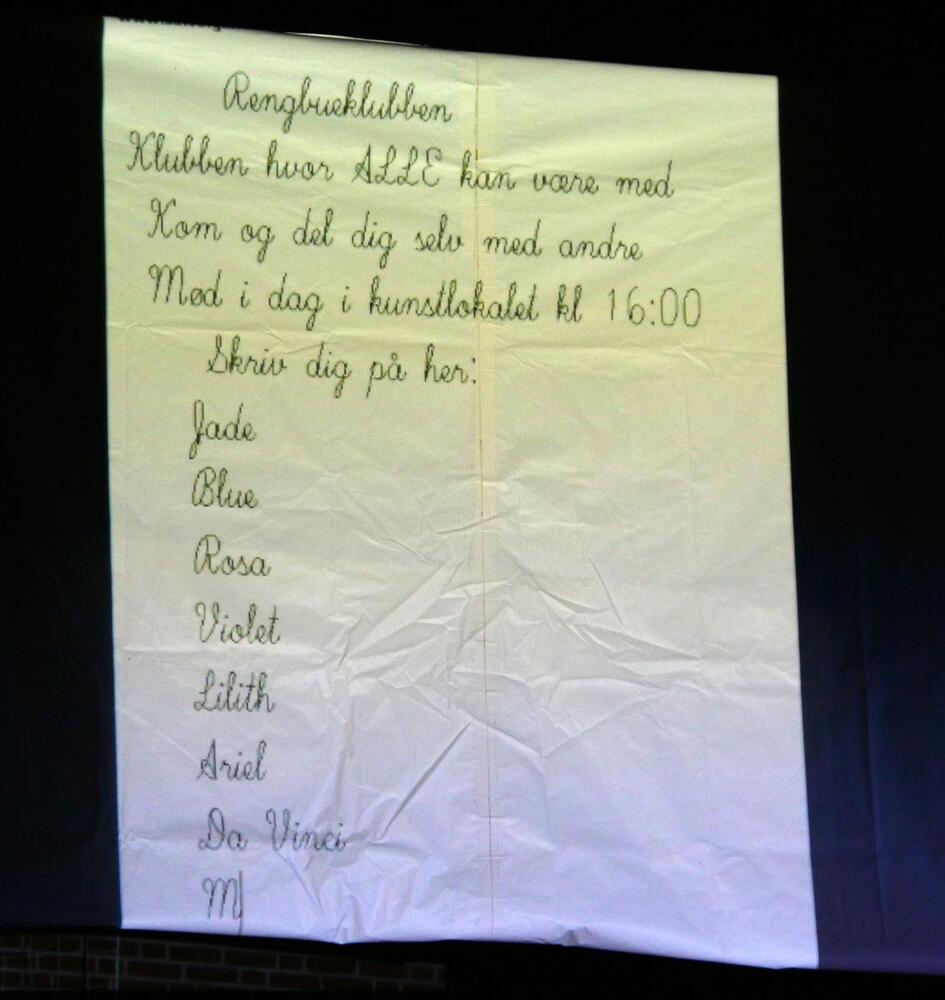 Rengbueklubben
Klubben hvor ALLE kan være med
Kom og del dig selv med andre
Mød i dag i kunstlokalet kl 16:00
Skriv dig på her:
Jade
Blue
Rosa
Violet
Lilith
Ariel
Da Vinci
M